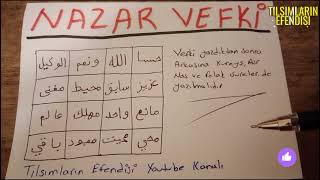 NAZAR VEFKİ
TILSIMLARIN EFENDİSİ
حسبنا الله ونعم الوكيل
عزيز سابق محيط مغني
مانع واحد مهلك عالم
محي مميت معبود باقي
Vefki yazdıktan sonra
Arkasına Kureyş, Asr
Nas ve Felak sureleri de
yazılmalıdır
Tılsımların Efendisi Youtube Kanalı